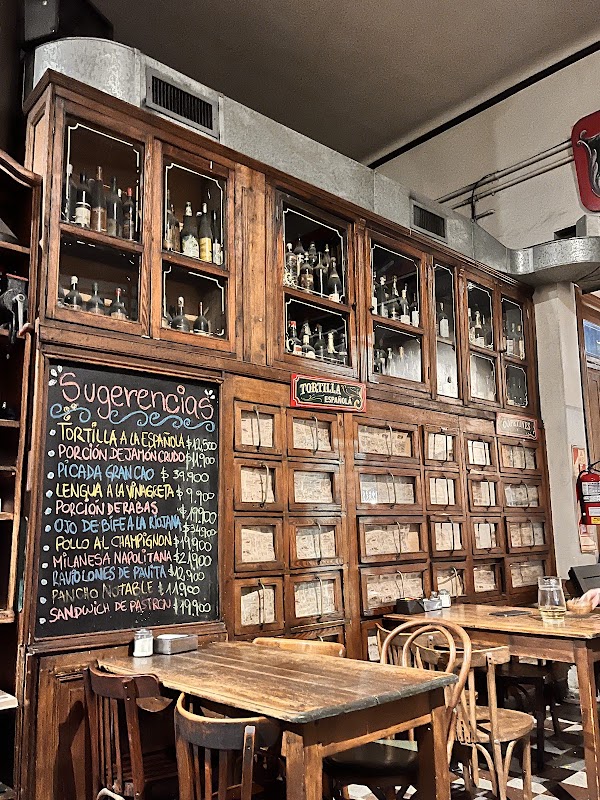 Sugerencias
TORTILLA A LA ESPAÑOLA $12,500
PORCIÓN DE JAMÓN CRUDO $11,900
PICADA GRAN CAO $39.900
LENGUA A LA VINAGRETA $9,900
PORCIÓN DE RABAS $19.900
OJO DE BIFE A LA RIOJANA $34,900
POLLO AL CHAMPIGNON $19,900
MILANESA NAPOLITANA $21,900
RAVIOLONES DE PAVITA $12,900
PANCHO NOTABLE $11900
SANDWICH DE PASTRON $19,900
TORTILLA
ESPAÑOLA